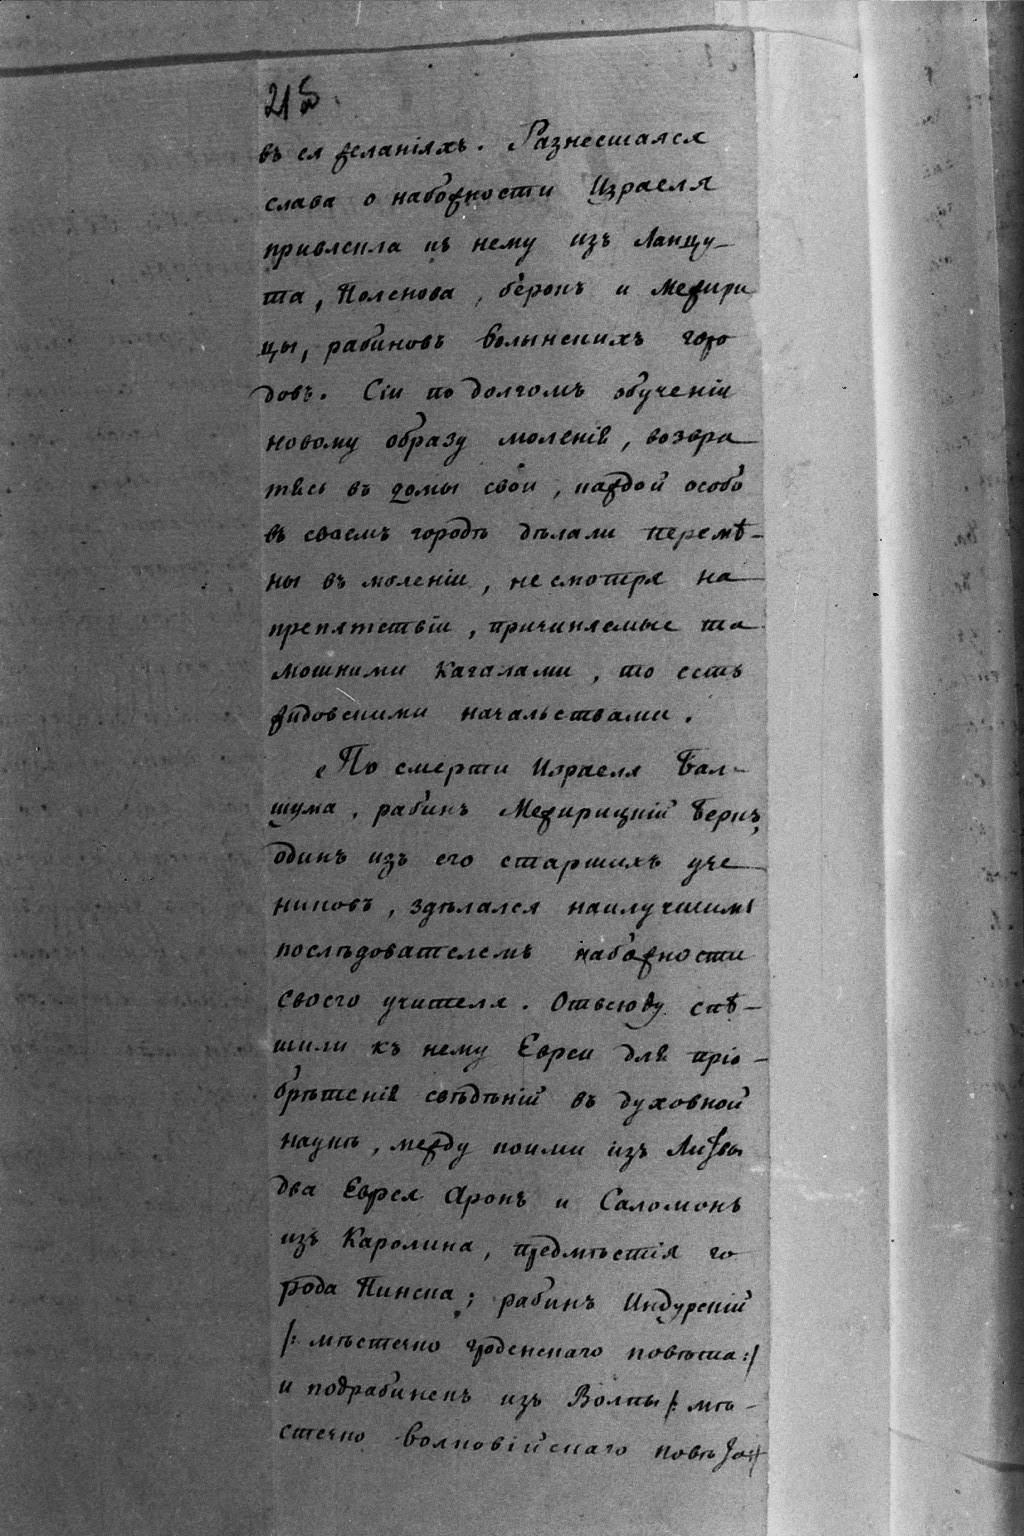 215
въ ея желаніяхъ. Разнесшаяся
слава о набожности Израеля
привлекла къ нему изъ Ланцу-
та, Полснова, берокъ и Межири
цы, рабиновъ волынскихъ горо
довъ. Сіи по долгомъ обученіи
новому образу моленія, возвра
тясь въ домы свои, каждой особо
въ своемъ городѣ дѣлали перемѣ-
ны въ моленіи, не смотря на
препятствіи, причиняемые та
мошними Кагалами, то есть
жидовскими начальствами.
По смерти Израеля Бал-
шума, рабинъ Межирицкій Беркъ,
одинъ изъ его старшихъ уче
никовъ, здѣлался наилучшимъ
послѣдователемъ набожности
своего учителя. Отвсюду спѣ-
шили къ нему Евреи для пріо-
брѣтенія свѣдѣній въ духовной
наукѣ, между коими изъ Литвы
два Еврея Аронъ и Саломонъ
изъ Каролина, предмѣстія го
рода Пинска; рабинъ Индурскій
/: мѣстечко гроденскаго повѣта :/
и подрабинекъ изъ Волпы /: мѣ-
стечко волковійскаго повѣта :/